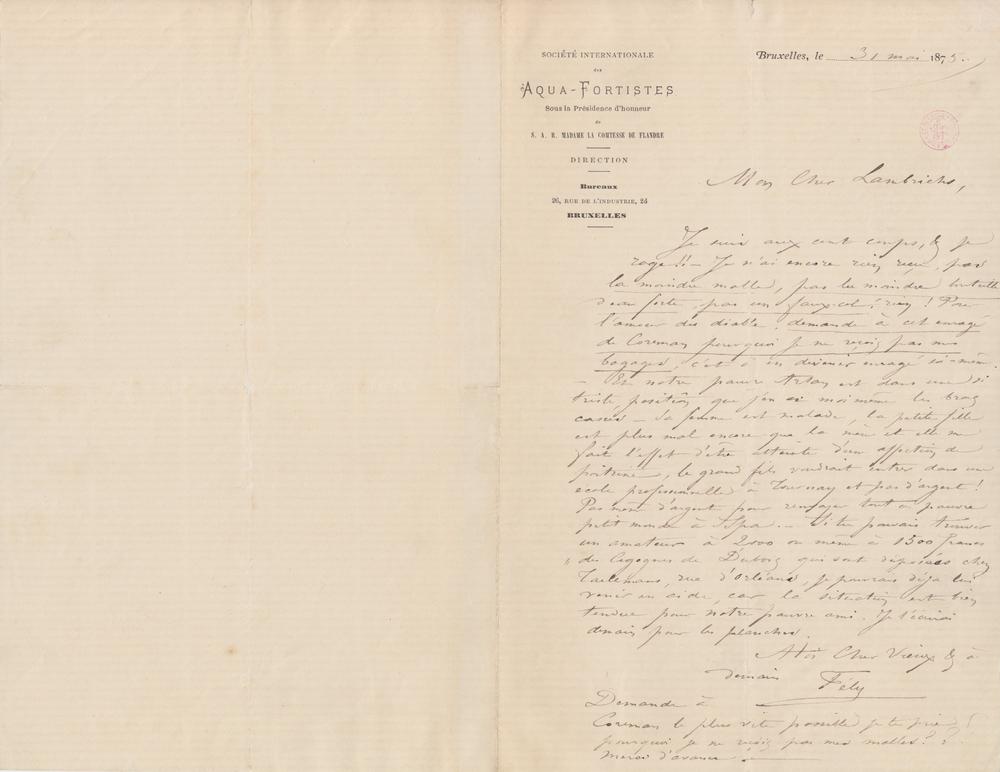 SOCIÉTÉ INTERNATIONALE
des
AQUA-FORTISTES
Sous la Présidence d'honneur
de
S. A. R. MADAME LA COMTESSE DE FLANDRE
DIRECTION
Bureaux
26, RUE DE L'INDUSTRIE, 24
BRUXELLES
Bruxelles, le 31 mai 1875.
Mon Cher Lambrichs,
Je suis aux cent coups, & je
rage!! – Je n'ai encore rien reçu, pas
la moindre malle, pas la moindre bouteille
d'eau forte, pas un faux-col! rien! Pour
l'amour du diable, demande à cet enragé
de Coreman pourquoi je ne reçois pas mes
bagages, c'est à en devenir enragé soi-même.
– Et notre pauvre Artan est dans une si
triste position que j'en ai moi même les bras
cassés – Sa femme est malade, la petite fille
est plus mal encore que la mère et elle me
fait l'effet d'être atteinte d'un affection de
poitrine, le grand fils voudrait entrer dans une
école professionnelle à Tournay et pas d'argent!
Pas même d'argent pour renvoyer tout ce pauvre
petit monde à Spa. – Si tu pouvais trouver
un amateur à 2000 ou même à 1500 francs
des Cigognes de Dubois qui sont déposées chez
rue d'Orléans, je pourrais déjà lui
venir en aide, car la situation est bien
tendue pour notre pauvre ami. Je t'écrirai
demain pour les planches.
A toi Cher Vieux & à
demain Fély
Demande à
Coreman le plus vite possible je te prie!
pourquoi je ne reçois pas mes malles??
Merci d'avance!